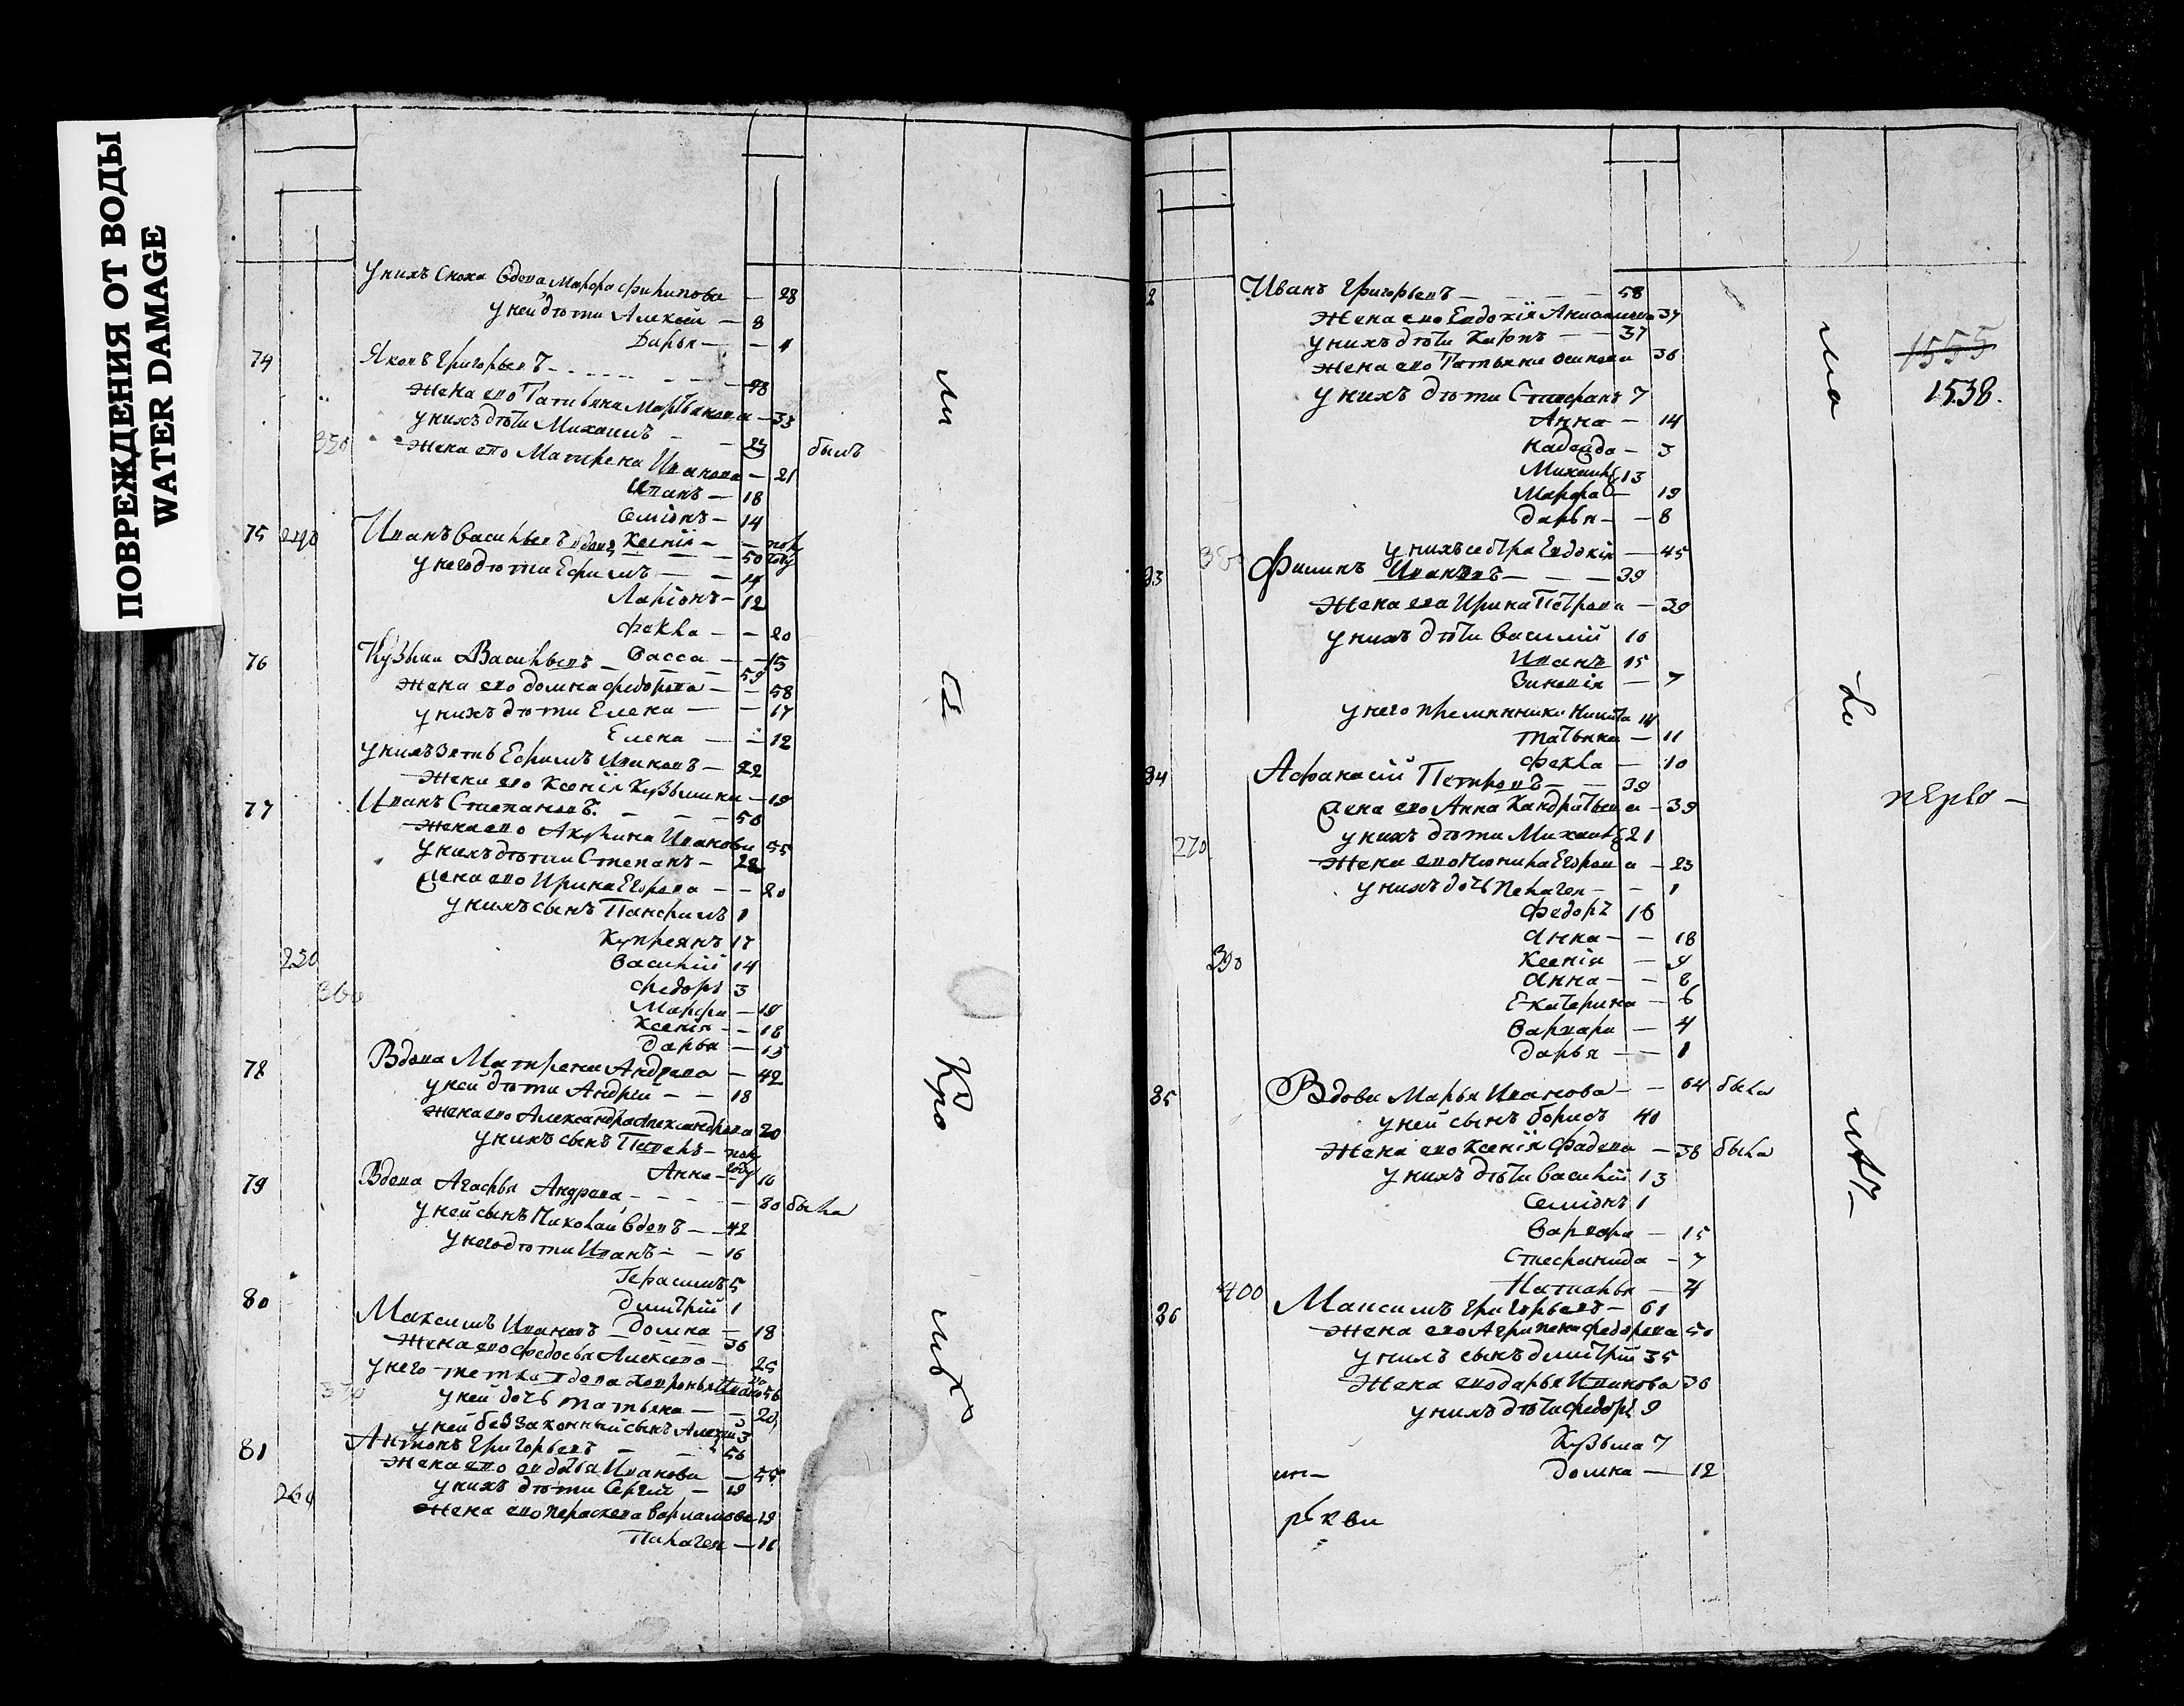 ПОВРЕЖДЕНИЯ ОТ ВОДЫ
WATER DAMAGE
у нихъ сноха вдова Марфа Филипова — 28
у ней дѣти Алексей — 8
Дарья — — 1
74 Яковъ Григорьевъ — 48
жена его Татьяна Мартынова — 33
у нихъ дѣти Михаилъ — — 23 былъ
350 жена его Матрена Иванова — 21
Иванъ — 18
Семіонъ — 14
75 240 Иванъ Васильевъ вдовъ Ксенія — — пол
году
50
у него дѣти Ефимъ — — 14
Ларіонъ — 12
Фекла — — 20
Васса — — 15
76 Кузьма Васильевъ — — 59
жена его Домна Федорова — — 58
у нихъ дѣти Елена — — 17
Елена — — 12
у нихъ зять Ефимъ Ивановъ — 22
жена его Ксенія Кузьмина — 19
77 Иванъ Степановъ — — — 56
жена его Акулина Иванова 55
у нихъ дѣти Степанъ — 22
жена его Ирина Егорова — — 20
у нихъ сынъ Панфилъ 1
Купреянъ 17
250 Василій 14
360 Федоръ 3
Марфа — 19
Ксенія — — 18
Дарья — 15
78 Вдова Матрена Андрева — 42
у ней дѣти Андрей — — 18
жена его Александра Александрова 20
у нихъ сынъ Павелъ — пол
году
Анна — — 10
79 Вдова Агафья Андрева — — — — 80 была
у ней сынъ Николай вдовъ — 42
у него дѣти Иванъ — — 16
Герасимъ 5
Дмитрій 1
Домна — 18
80 Максимъ Ивановъ — — 36
жена его Федосья Алексева — 25
у него тетка вдова Хавронья Иванова 56
370 у ней дочь Татьяна — — 20
у ней беззаконный сынъ Алексей 3
81 Антонъ Григорьевъ — — 56
жена его Авдотья Иванова — 55
у нихъ дѣти Сергей — 19
260 жена его Пераскева Варламова 19
Пилагея — 11
ли
сѣ
Кро
мѣ
2 Иванъ Григорьевъ — — — — 58
жена его Евдокія 57
у нихъ дѣти Карпъ — — 37
жена его Татьяна Осипова 36
у нихъ дѣти Стефанъ 7
Анна — 14
Надежда — 3
Михаилъ 13
Марфа — 19
Дарья — — 8
380 у нихъ сестра Евдокія — 45
83 Филипъ Ивановъ — — — 39
жена его Ирина Петрова — 39
у нихъ дѣти Василій 16
Иванъ 15
Зиновія — 7
у него племянники Никита 14
Татьяна — 11
Фекла — 10
84 Афанасій Петровъ — — 39
жена его Анна Кандратьева — 39
у нихъ дѣти Михаилъ 21
270 жена его Неонила Егорова — 23
у нихъ дочь Пелагея — — 1
Федоръ 16
Анна — — 18
390 Ксенія — 9
Анна — — 8
Екатерина — 6
Варвара — 4
Дарья — — 1
85 Вдова Марья Иванова — — 64 была
у ней сынъ Борисъ 40
жена его Ксенія Фадева — 38 была
у нихъ дѣти Василій 13
Семіонъ 1
Варвара — 15
Стефанида — 7
400 Наталья — 4
86 Максимъ Григорьевъ — 61
жена его Агрипена Федорова 50
у нихъ сынъ Дмитрій 35
жена его Дарья Иванова 36
у нихъ дѣти Федоръ 9
Кузьма 7
Домна — 12
рькви
ма
ло
лѣт—
1555
1538.
перво—